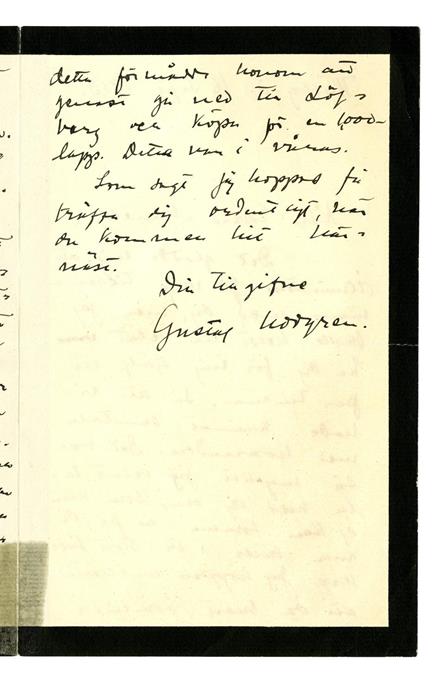 detta förmådde honom att
genast gå ned till Löfs-
berg och köpa för en 1,000-
lapp. Detta var i våras.
Som sagt jag hoppas få
träffa dig ordentligt, när
du kommer hit här-
näst.
Din tillgifne
Gustaf